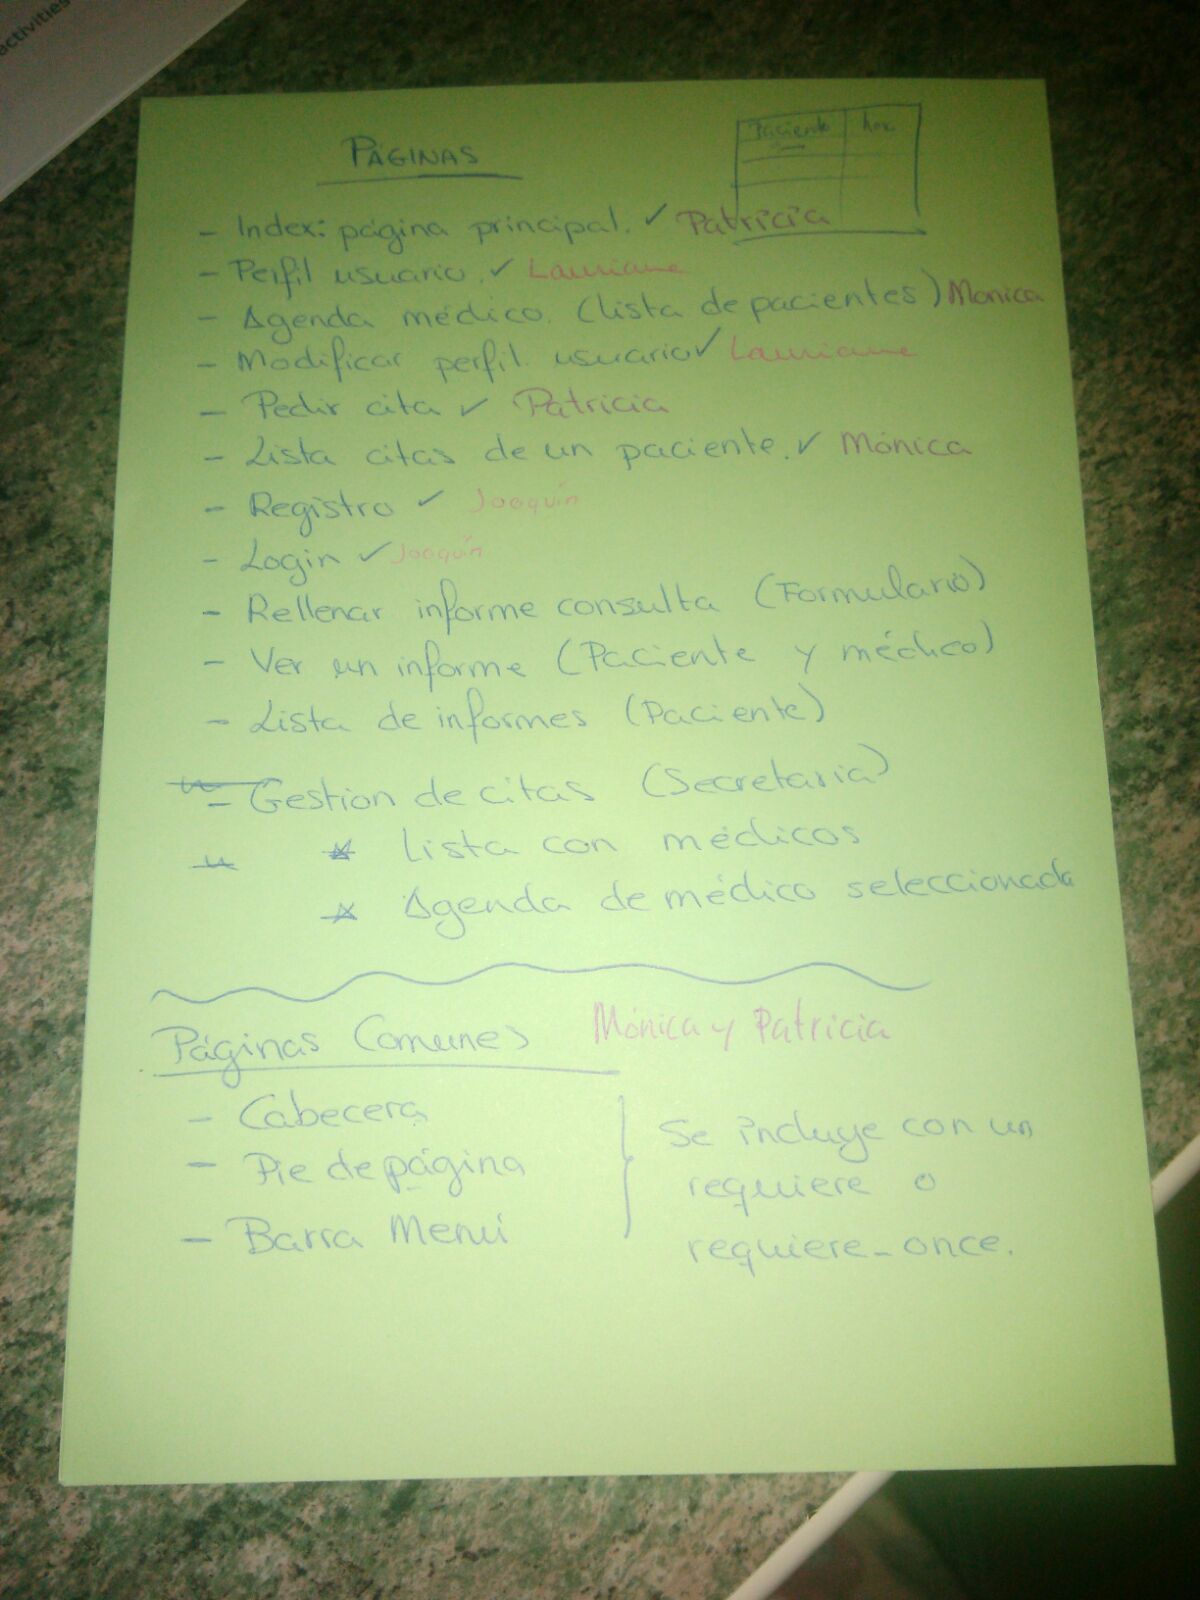 activities
PÁGINAS
Paciente hora
- Index: página principal. ✓ Patricia
- Perfil usuario. ✓ Lauriane
- Agenda médico. (lista de pacientes) Monica
- Modificar perfil usuario ✓ Lauriane
- Pedir cita ✓ Patricia
- Lista citas de un paciente. ✓ Mónica
- Registro ✓ Joaquín
- Login ✓ Joaquín
- Rellenar informe consulta (Formulario)
- Ver un informe (Paciente y médico)
- Lista de informes (Paciente)
- Gestion de citas (Secretaria)
* Lista con médicos
* Agenda de médico seleccionada
Páginas Comunes Mónica y Patricia
- Cabecera
- Pie de página
- Barra Menú
Se incluye con un
requiere o
requiere_once.